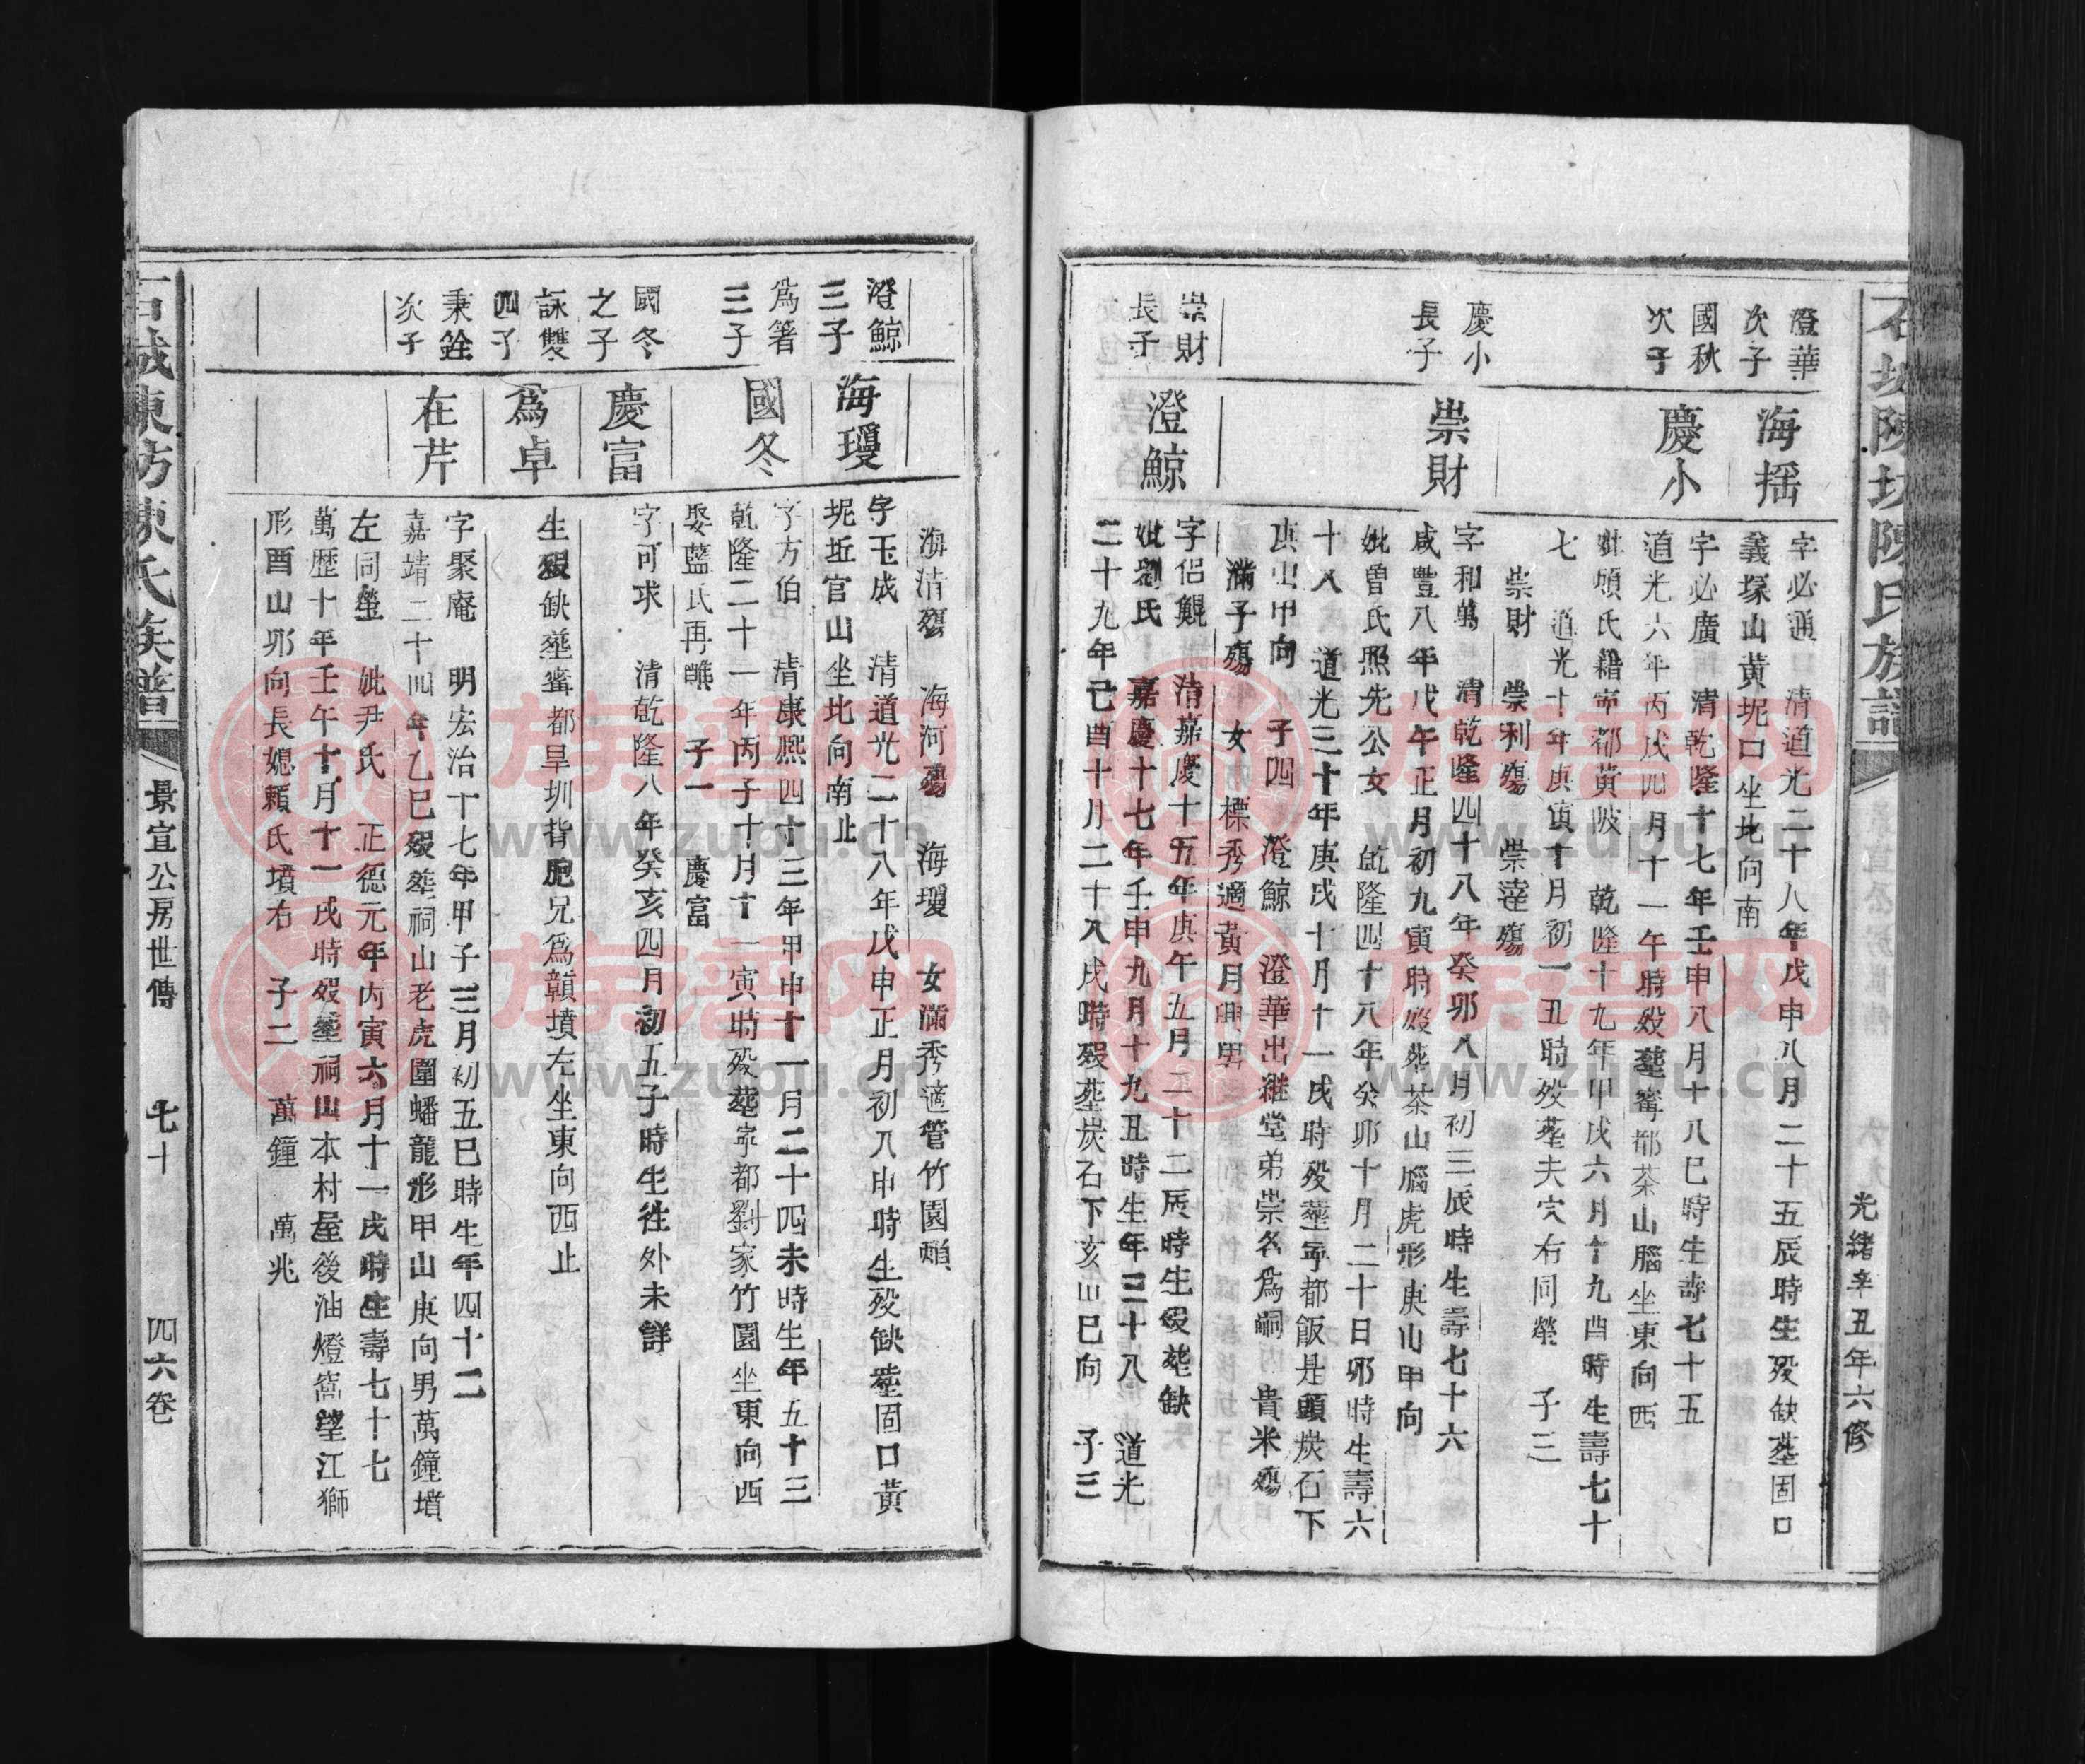 石城陳坊陳氏族譜
光緒辛丑年六修
澄華次子
海摇
字必通 清道光二十八年戊申八月二十五辰時生歿缺塟固口
義塚山黃坭口坐北向南
國秋次子
慶小
字必廣 清乾隆十七年壬申八月十八巳時生壽七十五
道光六年丙戌四月十一午時歿塟寗都茶山腦坐東向西
妣頃氏籍寗都黃陂 乾隆十九年甲戌六月十九酉時生壽七十
七 道光十年庚寅十月初一丑時歿塟夫穴右同塋 子三
崇財 崇利殤 崇達殤
慶小長子
崇財
字和萬 清乾隆四十八年癸卯八月初三辰時生壽七十六
咸豐八年戊午正月初九寅時歿塟茶山腦虎形庚山甲向
妣曾氏照先公女 乾隆四十八年癸卯十月二十日卯時生壽六
十八 道光三十年庚戌十月十一戌時歿塟寗都飯是頭炭石下
庚山甲向 子四 澄鯨 澄華出繼堂弟崇名爲嗣 貴米殤
滿子殤 女 標秀適黃月興男
崇財長子
澄鯨
字侶鯤 清嘉慶十五年庚午五月二十二辰時生歿塟缺
妣劉氏 嘉慶十七年壬申九月十九丑時生年三十八 道光
二十九年己酉十月二十八戌時歿塟炭石下亥山巳向 子三
海清殤 海河殤 海瓊 女滿秀適管竹園頼
澄鯨三子
海瓊
字玉成 清道光二十八年戊申正月初八申時生歿缺塟固口黃
坭坵官山坐北向南止
爲箸三子
國冬
字方伯 清康熙四十三年甲申十一月二十四未時生年五十三
乾隆二十一年丙子十月十一寅時歿塟寧都劉家竹園坐東向西
娶藍氏再醮 子一 慶富
國冬之子
慶富
字可求 清乾隆八年癸亥四月初五子時生往外未詳
詠雙四子
爲卓
生歿缺塟寗都旱圳背胞兄爲顜墳左坐東向西止
秉銓次子
在芹
字聚庵 明宏治十七年甲子三月初五巳時生年四十二
嘉靖二十四年乙巳歿塟祠山老虎圍蟠龍形甲山庚向男萬鐘墳
左同塋 妣尹氏 正德元年丙寅六月十一戌時生壽七十七
萬歷十年壬午十月十一戌時歿塟祠山本村屋後油燈窩望江獅
形酉山卯向長媳賴氏墳右 子二 萬鐘 萬兆
石城陳坊陳氏族譜
景宜公房世傳 七十 四六卷
族譜网
www.zupu.cn
族譜网
www.zupu.cn
族譜网
www.zupu.cn
族譜网
www.zupu.cn